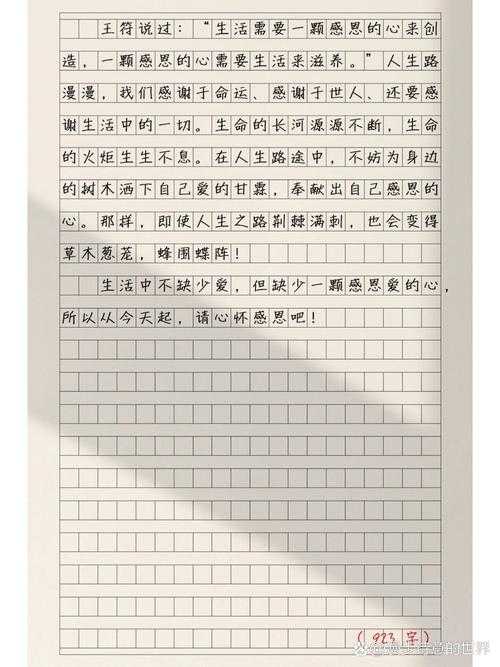 王符说过：“生活需要一颗感恩的心来创
造，一颗感恩的心需要生活来滋养。”人生路
漫漫，我们感谢于命运、感谢于世人、还要感
谢生活中的一切。生命的长河源源不断，生命
的火炬生生不息。在人生路途中，不妨为身边
的树木洒下自己爱的甘霖，奉献出自己感恩的
心。那样，即使人生之路荆棘满刺，也会变得
草木葱茏，蜂围蝶阵！
生活中不缺少爱，但缺少一颗感恩爱的心，
所以从今天起，请心怀感恩吧！
（923字）
的世界